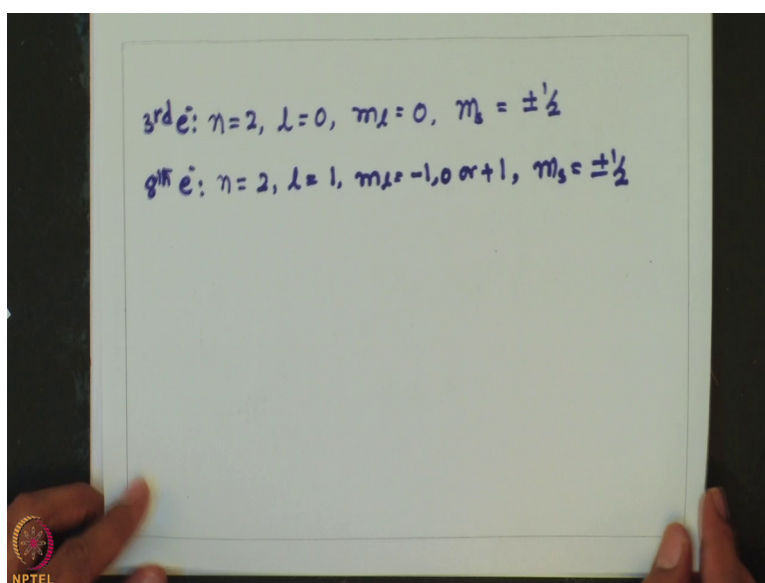 3rd e⁻: n=2, l=0, ml=0, ms = ±1/2
8th e⁻: n=2, l=1, ml=-1,0 or +1, ms=±1/2
NPTEL